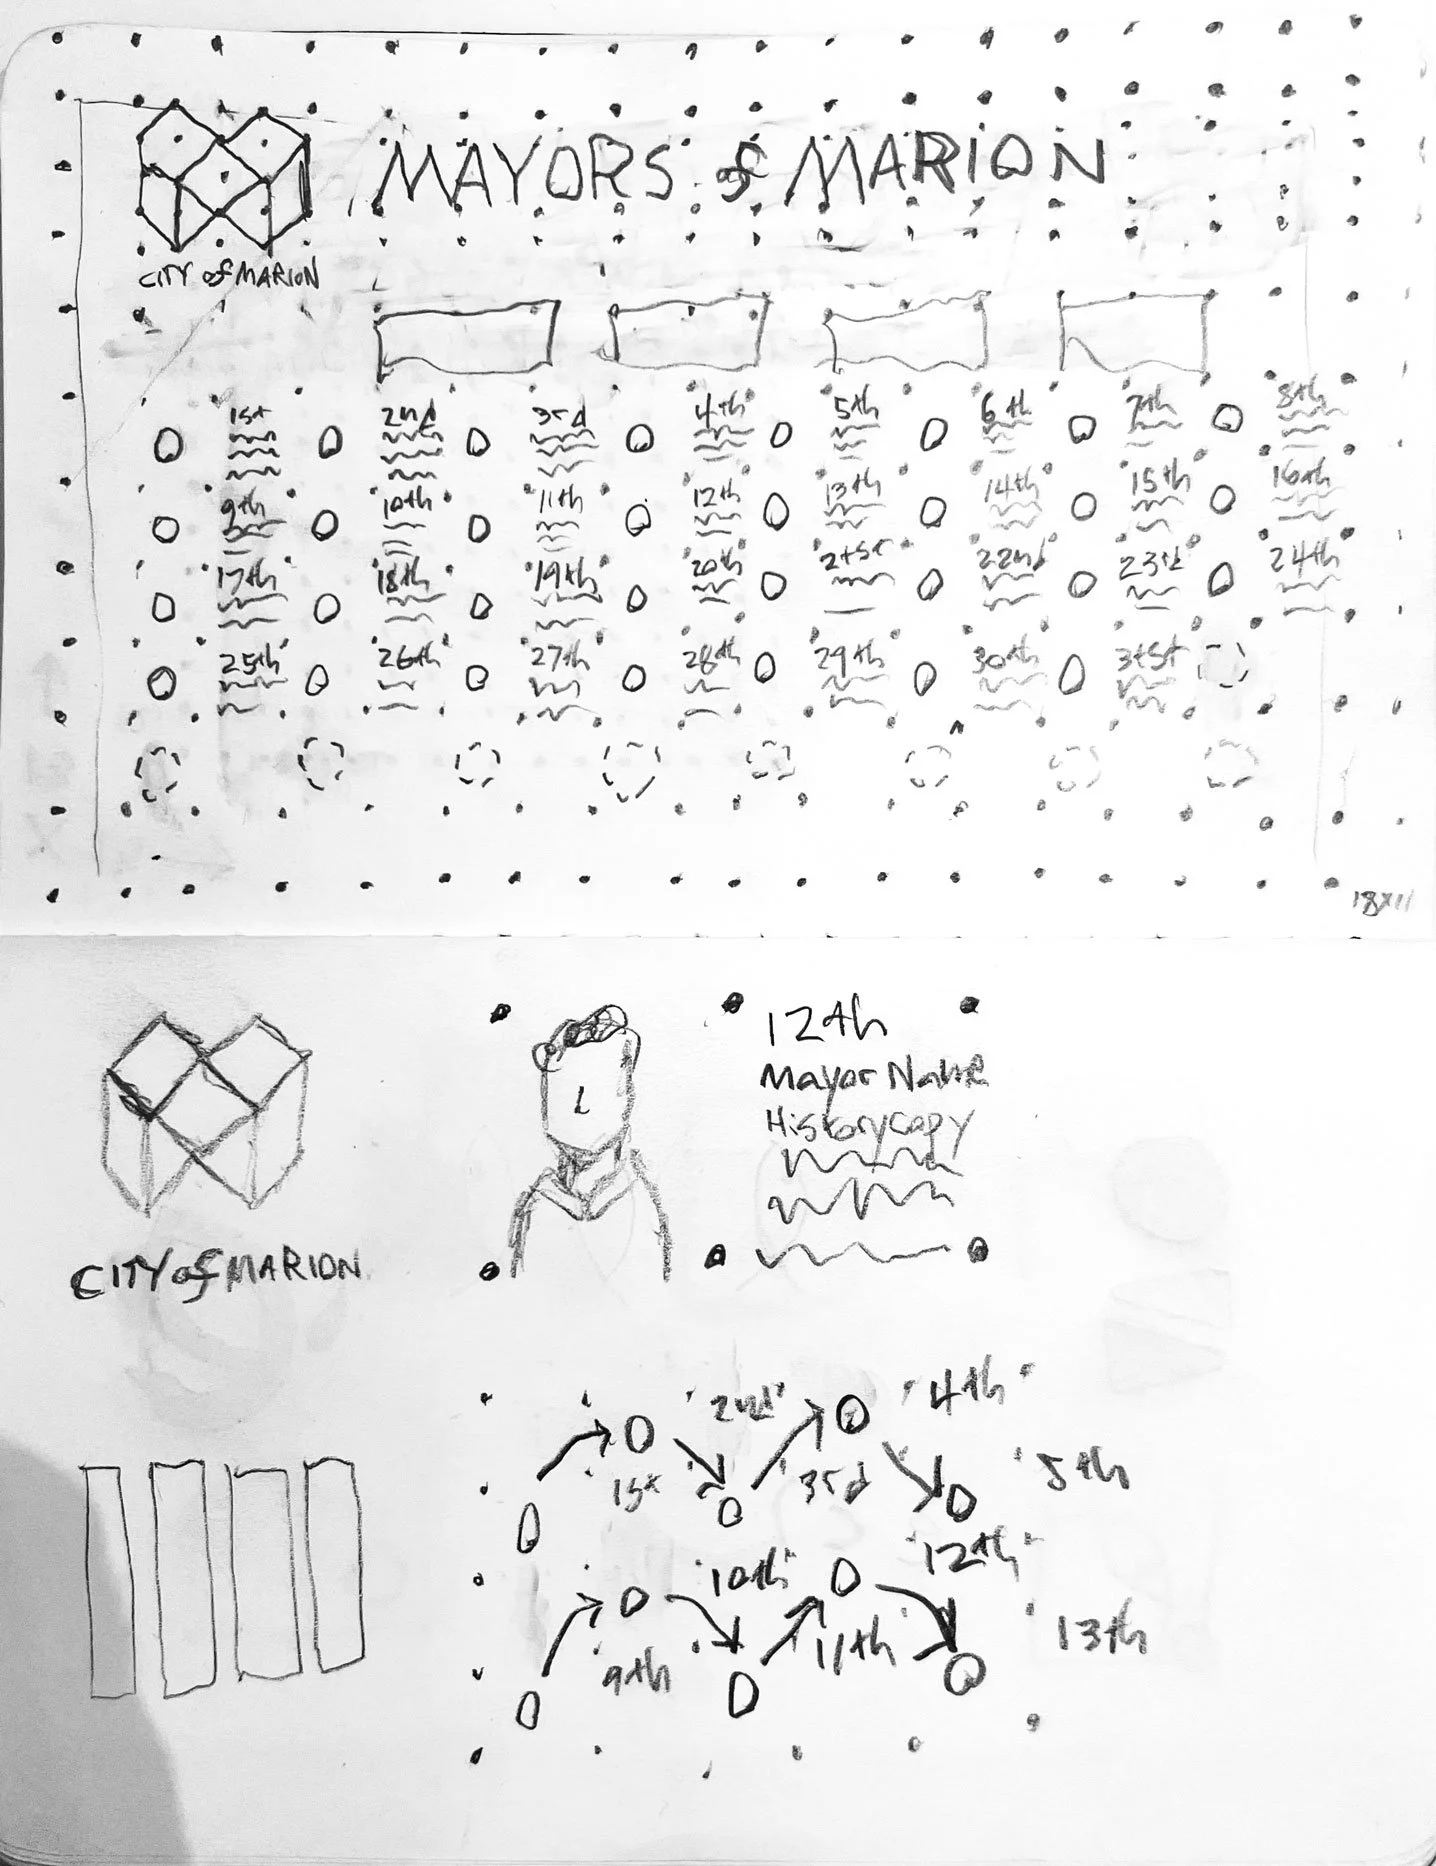 MAYORS of MARION
CITY of MARION
1st 2nd 3rd 4th 5th 6th 7th 8th
9th 10th 11th 12th 13th 14th 15th 16th
17th 18th 19th 20th 21st 22nd 23rd 24th
25th 26th 27th 28th 29th 30th 31st
18x11
12th
Mayor Name
History copy
CITY of MARION
1st 2nd 3rd 4th 5th
9th 10th 11th 12th 13th